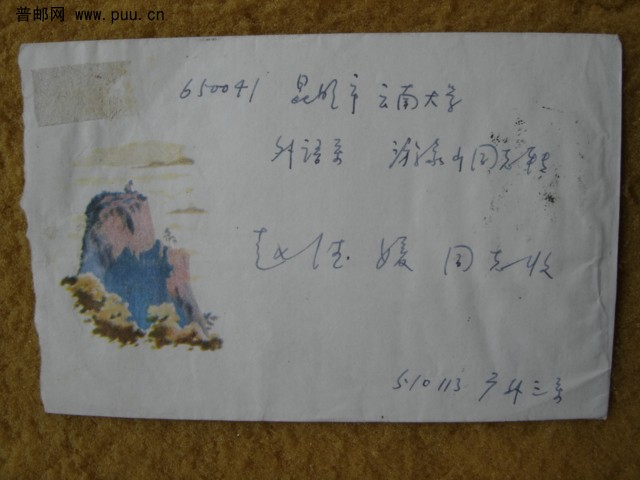 普邮网 www.puu.cn
650041 昆明市云南大学
外语系 同志转
赵德媛 同志收
510113 广外三系